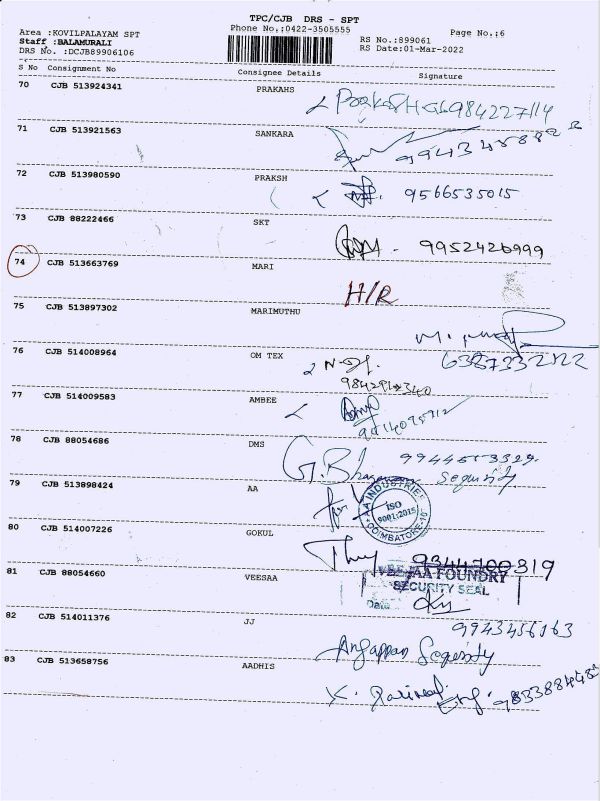 TPC/CJB DRS - SPT
Area :KOVILPALAYAM SPT Phone No.:0422-3505555 Page No.:6
Staff :BALAMURALI RS No.:899061
DRS No. :DCJB89906106 RS Date:01-Mar-2022
S No Consignment No Consignee Details Signature
70 CJB 513924341 PRAKAHS
71 CJB 513921563 SANKARA
72 CJB 513980590 PRAKSH
9566535015
73 CJB 88222466 SKT
9952426999
74 CJB 513663769 MARI
H/R
75 CJB 513897302 MARIMUTHU
76 CJB 514008964 OM TEX
77 CJB 514009583 AMBEE
78 CJB 88054686 DMS
79 CJB 513898424 AA
INDUSTRIES
ISO
9001:2015
COIMBATORE
80 CJB 514007226 GOKUL
9344700319
81 CJB 88054660 VEESAA
VEEJAA FOUNDRY
SECURITY SEAL
Date
82 CJB 514011376 JJ
9943456163
Angappan Segurity
83 CJB 513658756 AADHIS